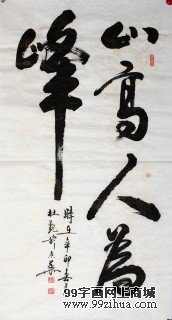 山高人為
峰
時在辛卯春月
杜乾郎書
99字画网上商城
www.99zihua.com